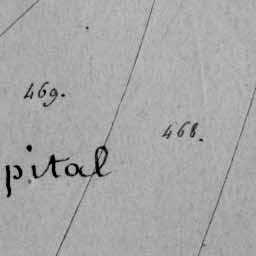 469.
468.
pital